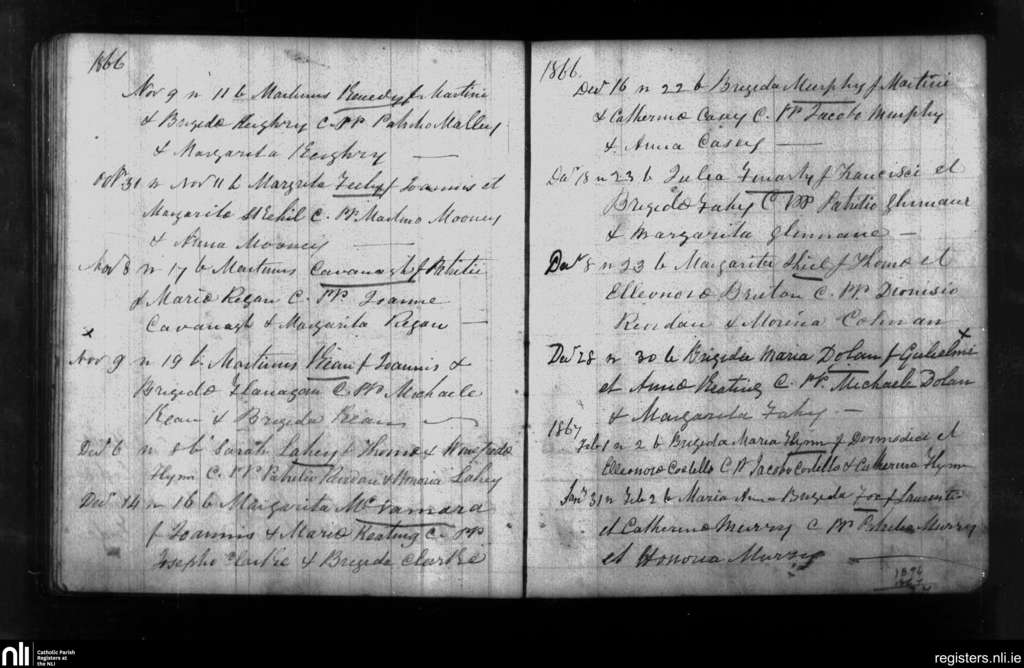 1866
Nov 9 n 11 b Martinus Kenedy f Martini
& Brigida Keighry C. PP Patritio Malley
& Margarita Keighry
Oct 31 n Nov 11 b Margrita Feehy f Joannis et
Margarita C. PP. Martino Mooney
& Anna Mooney
Nov 8 n 17 b Martinus Cavanagh f Patritii
& Maria Regan C. PP Joanne
Cavanagh & Margarita Regan
x
Nov 9 n 19 b Martinus Kean f Joannis &
Brigida Flanagan C. PP Michaele
Kean & Brigida Kean
Decr 6 n 8 b Sarah Lahey f Thoma & Winifreda
Flynn C. PP Patritio & Honoria Lahey
Decr 14 n 16 b Margarita McNamara
f Joannis & Maria Keating C. PP
Josepho Clarke & Brigida Clarke
1866
Decr 16 n 22 b Brigida Murphy f Martini
& Catherina Casey C. PP Jacobo Murphy
& Anna Casey
n 23 b Julia Finarty f Francisci et
Brigida Fahy C PP Patritio Glennane
& Margarita Glennane
Decr 8 n 23 b Margarita Shiel f Thoma et
Elleonora Bruton C. PP Dionisio
Reardan & Morina Colman
x
Decr 28 n 30 b Brigida Maria Dolan f Gulielmi
et Anna Keating C. PP. Michaele Dolan
& Margarita Fahy
1867
Feb 1 n 2 b Brigida Maria Flynn f Dermodici et
Elleonora Costello C. P Jacobo Costello & Catherina Flynn
Janr 31 n Feb 2 b Maria Anna Brigida Fox f
et Catherina Murry C PP Patritio Murry
et Honoria Murry
1896
nli
Catholic Parish
Registers at
the NLI
registers.nli.ie